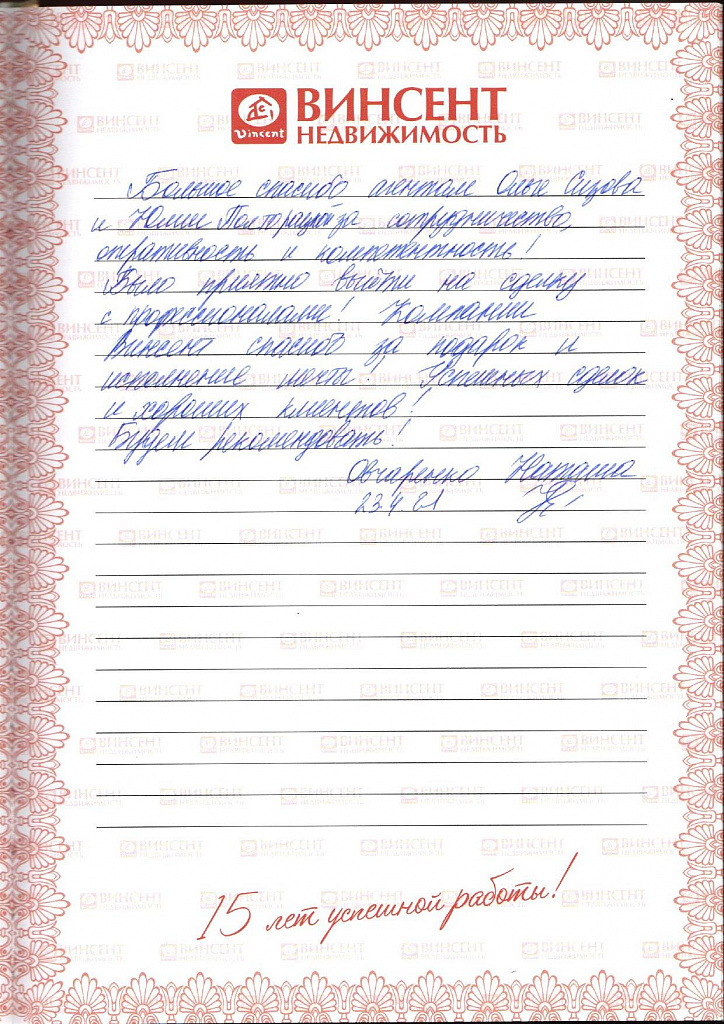 Vincent
ВИНСЕНТ
НЕДВИЖИМОСТЬ
Большое спасибо агентам Ольге Сизова
и Юлии Полторацкой за сотрудничество,
оперативность и компетентность!
Было приятно выйти на сделку
с профессионалами! Компании
Винсент спасибо за подарок и
исполнение мечты. Успешных сделок
и хороших клиентов!
Будем рекомендовать!
Овчаренко Наташа
23.4.21
15 лет успешной работы!